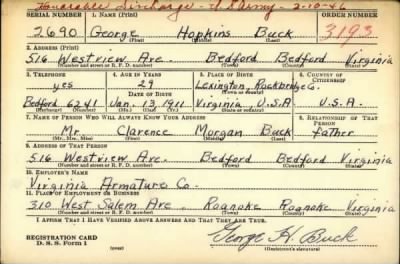 Honorable Discharge - U.S. Army - 2-10-46
SERIAL NUMBER 1. NAME (Print) ORDER NUMBER
2690 George Hopkins Buck 3193
(First) (Middle) (Last)
2. ADDRESS (Print)
516 Westview Ave. Bedford Bedford Virginia
(Number and street or R. F. D. number) (Town) (County) (State)
3. TELEPHONE 4. AGE IN YEARS 5. PLACE OF BIRTH 6. COUNTRY OF CITIZENSHIP
yes 29 Lexington, Rockbridge Co.
DATE OF BIRTH
Bedford 6241 Jan. 13 1911 Virginia U.S.A U.S.A.
(Exchange) (Number) (Mo.) (Day) (Yr.) (State or country)
7. NAME OF PERSON WHO WILL ALWAYS KNOW YOUR ADDRESS 8. RELATIONSHIP OF THAT PERSON
Mr. Clarence Morgan Buck father
(Mr., Mrs., Miss) (First) (Middle) (Last)
9. ADDRESS OF THAT PERSON
516 Westview Ave. Bedford Bedford Virginia
(Number and street or R. F. D. number) (Town) (County) (State)
10. EMPLOYER'S NAME
Virginia Armature Co.
11. PLACE OF EMPLOYMENT OR BUSINESS
310 West Salem Ave. Roanoke Roanoke Virginia
(Number and street or R. F. D. number) (Town) (County) (State)
I AFFIRM THAT I HAVE VERIFIED ABOVE ANSWERS AND THAT THEY ARE TRUE.
REGISTRATION CARD
D. S. S. Form 1 (over) George H. Buck
(Registrant's signature)